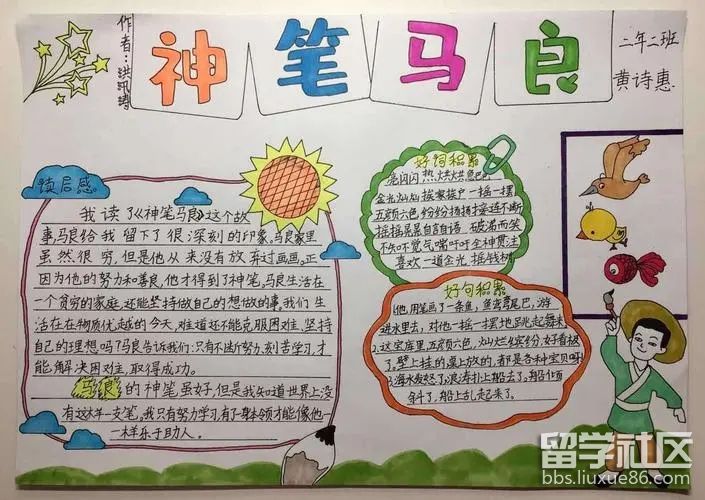 作者：洪汛涛
神笔马良
二年二班
黄诗惠
读后感。
我读了《神笔马良》这个故
事,马良给我留下了很深刻的印象。马良家里
虽然很穷,但是他从来没有放弃过画画。正
因为他的努力和善良,他才得到了神笔。马良生活在
一个贫穷的家庭,还能坚持做自己的想做的事。我们生
活在在物质优越的今天,难道还不能克服困难,坚持
自己的理想吗?马良告诉我们:只有不断努力,刻苦学习,才
能解决困难,取得成功。
马良的神笔虽好,但是我知道世界上没
有这样一支笔。我只有努力学习,有了一身本领才能像他一
一样乐于助人。
好词积累
亮闪闪 热烘烘
金光灿灿 挨家挨户 一摇一摆
五颜六色 纷纷扬扬 接连不断
摇摇晃晃 自言自语 破涕而笑
不知不觉 气喘吁吁 全神贯注
喜欢 一道金光 摇钱树
好句积累
他用笔画了一条鱼,鱼弯弯尾巴,游
进水里去,对他一摇一摆地跳起舞来
2.这宝库里五颜六色,灿烂缤纷,好看极
了。壁上挂的桌上放的,都是各种宝贝呀!
3.海水发怒了,浪涛扑上船去了。船倾
斜了,船上乱起来了。
留学社区
bbs.liuxue86.com